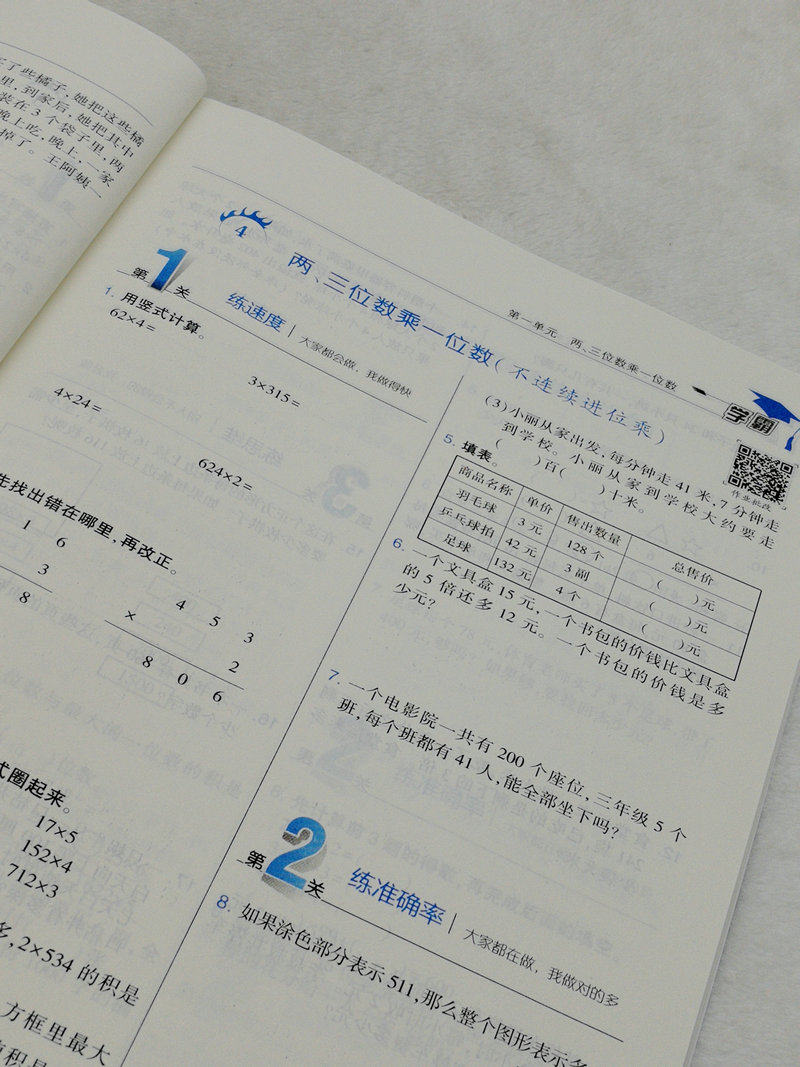 了些橘子,她把这些橘
里,到家后,她把其中
装在3个袋子里,两
晚上吃,晚上,一家
掉了。王阿姨
第一单元 两、三位数乘一位数
学霸
作业批改
4
两、三位数乘一位数(不连续进位乘)
第1关
练速度
大家都会做,我做得快
1. 用竖式计算。
62×4=
3×315=
4×24=
624×2=
先找出错在哪里,再改正。
1 6
3
8
4 5 3
× 2
8 0 6
式圈起来。
17×5
152×4
712×3
多,2×534的积是
方框里最大
积是
(3)小丽从家出发,每分钟走41米,7分钟走
到学校。小丽从家到学校大约要走
( )百( )十米。
5. 填表。
商品名称 单价 售出数量 总售价
羽毛球 3元 128个 ( )元
乒乓球拍 42元 3副 ( )元
足球 132元 4个 ( )元
6. 一个文具盒15元,一个书包的价钱比文具盒
的5倍还多12元。一个书包的价钱是多
少元?
7. 一个电影院一共有200个座位,三年级5个
班,每个班都有41人,能全部坐下吗?
第2关
练准确率
大家都在做,我做对的多
8. 如果涂色部分表示511,那么整个图形表示多